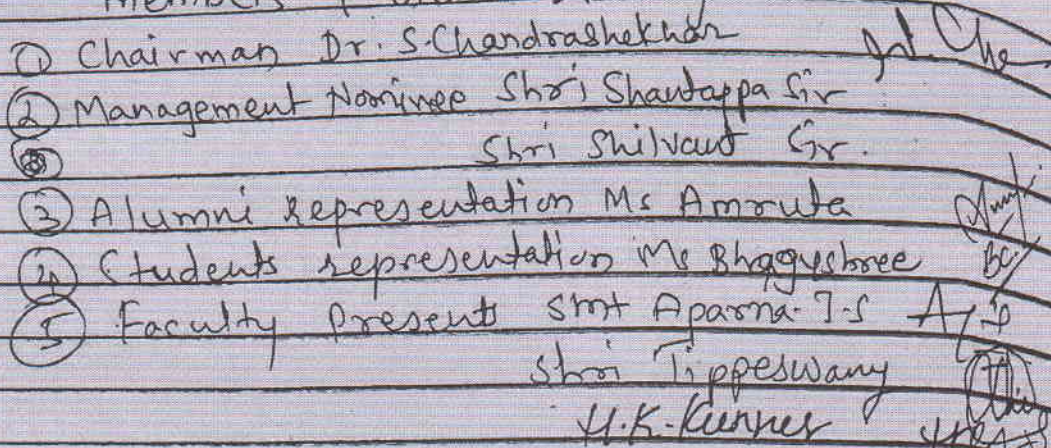 Members
① Chairman Dr. S. Chandrashekhar
② Management Nominee Shri Shantappa Sir
Shri Shilvant Sir.
③ Alumni representation Ms Amruta
④ Students representation Ms Bhagyshree
⑤ Faculty Present Smt Aparna. J.S
Shri Tippeswamy
H.K.